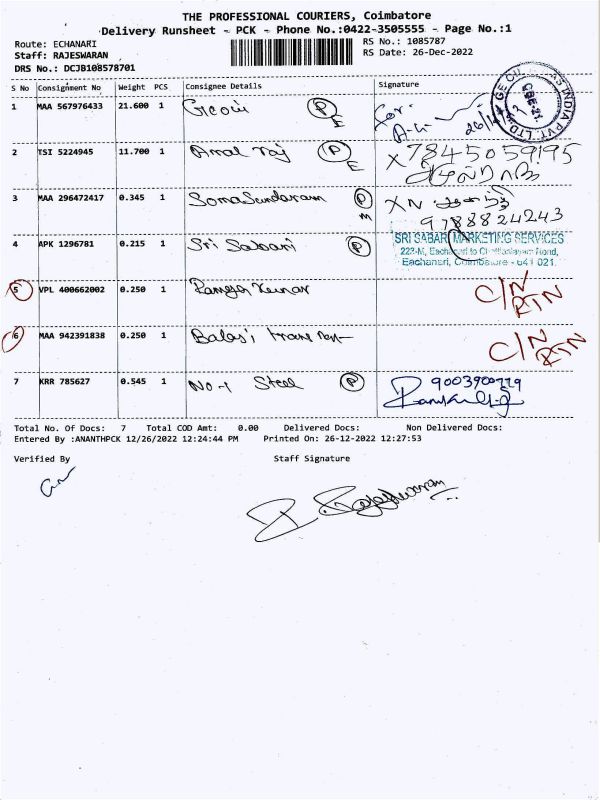 THE PROFESSIONAL COURIERS, Coimbatore
Delivery Runsheet - PCK - Phone No.:0422-3505555 - Page No.:1
Route: ECHANARI
RS No.: 1085787
Staff: RAJESWARAN
RS Date: 26-Dec-2022
DRS No.: DCJB108578701
S No Consignment No Weight PCS Consignee Details Signature
1 MAA 567976433 21.600 1 P E
2 TSI 5224945 11.700 1 Amal raj P E X 7845059195
3 MAA 296472417 0.345 1 SomaSundaram P M X
9788824243
4 APK 1296781 0.215 1 Sri Sabari P
SRI SABARI MARKETING SERVICES
Eachanari, Coimbatore - 641 021.
5 VPL 400662002 0.250 1 C/N RTN
6 MAA 942391838 0.250 1 Balaji C/N RTN
7 KRR 785627 0.545 1 No-1 Steel P
Total No. Of Docs: 7 Total COD Amt: 0.00 Delivered Docs: Non Delivered Docs:
Entered By :ANANTHPCK 12/26/2022 12:24:44 PM Printed On: 26-12-2022 12:27:53
Verified By Staff Signature
Rajeshwaran